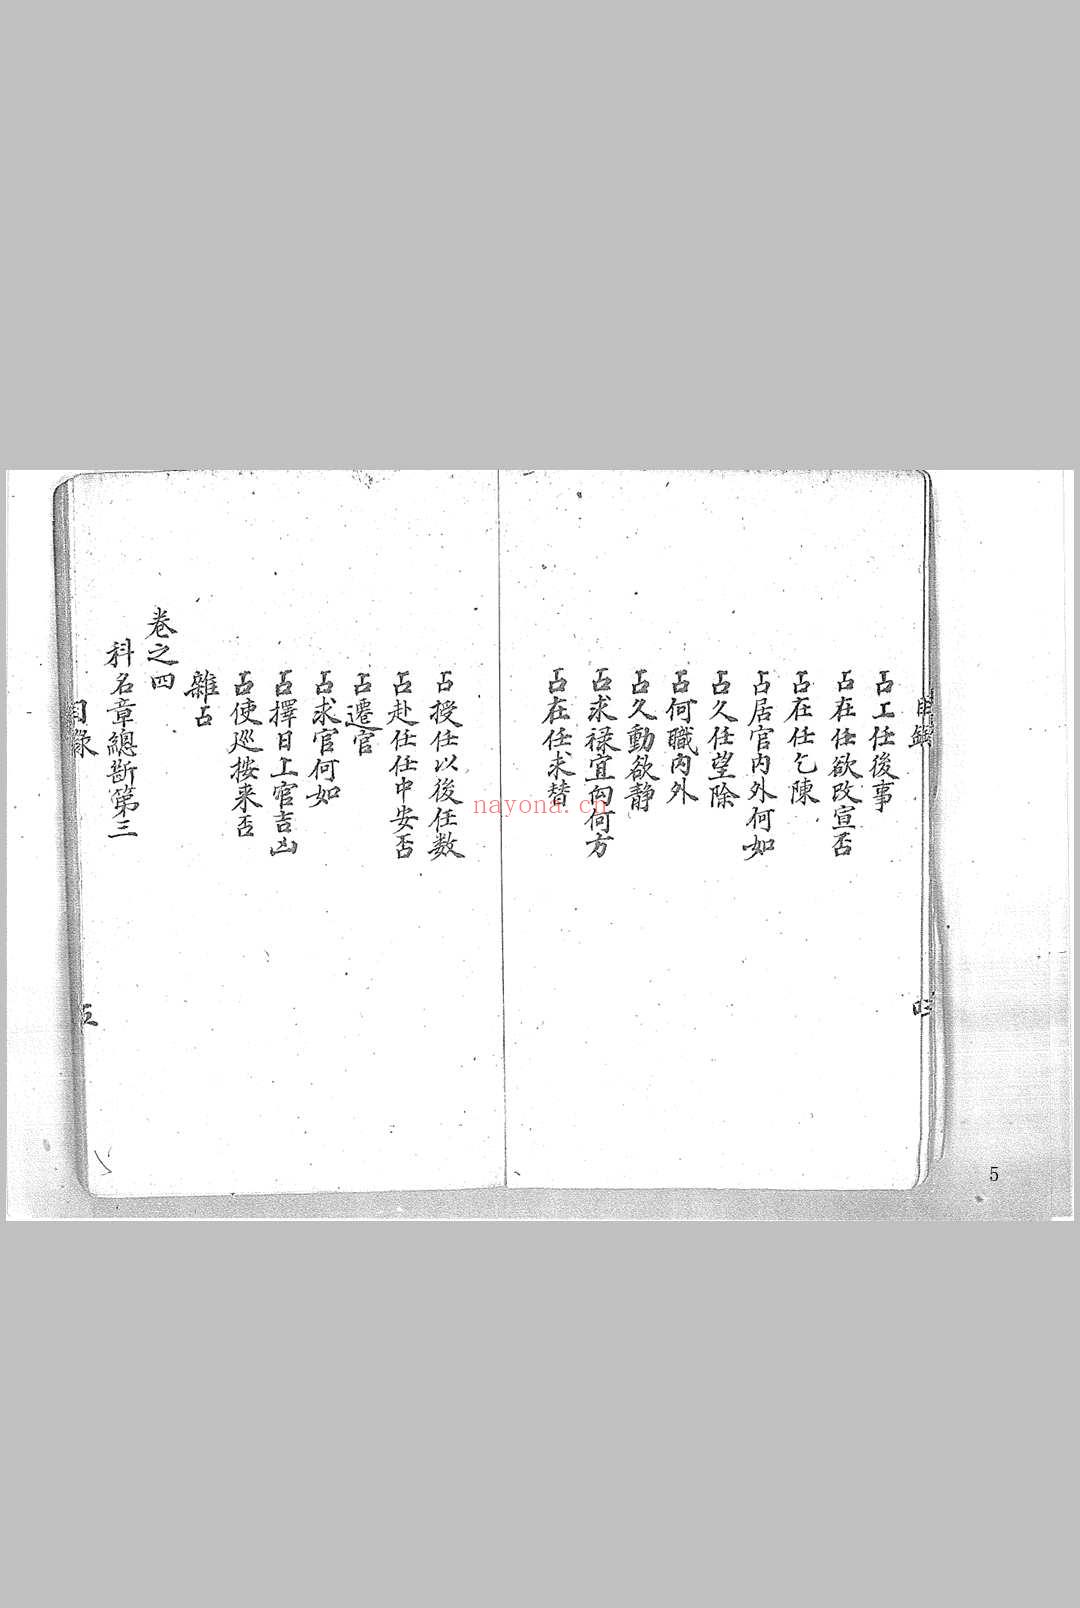 目錄
占上任後事
占在任欲改宣否
占在任乞陳
占居官內外何如
占久任望除
占何職內外
占久動欲靜
占求祿宜向何方
占在任求替
占授任以後任数
占赴任任中安否
占遷官
占求官何如
占擇日上官吉凶
占使廵按来否
雜占
卷之四
科名章總斷第三
目錄
五
nayona.cn
5